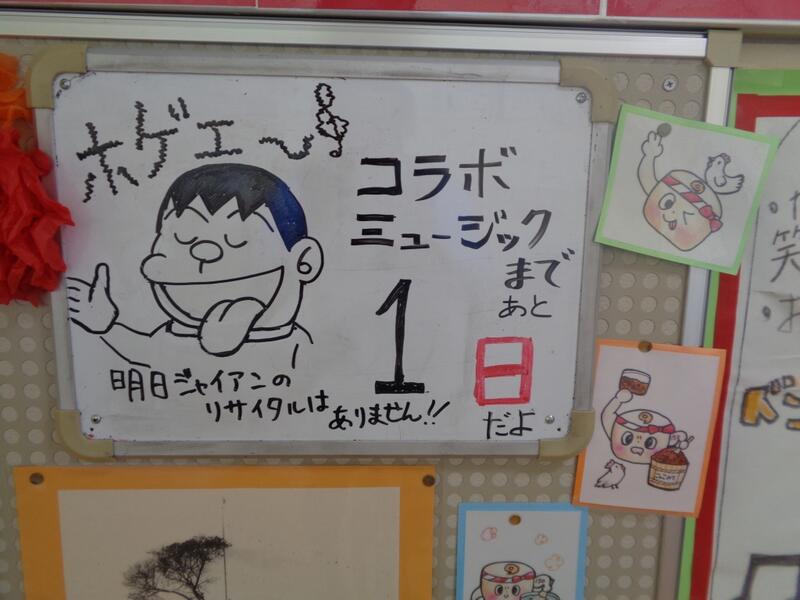 ホゲェ〜
コラボ
ミュージック
まで
あと
1
日
だよ
明日ジャイアンの
リサイタルは
ありません!!
笑